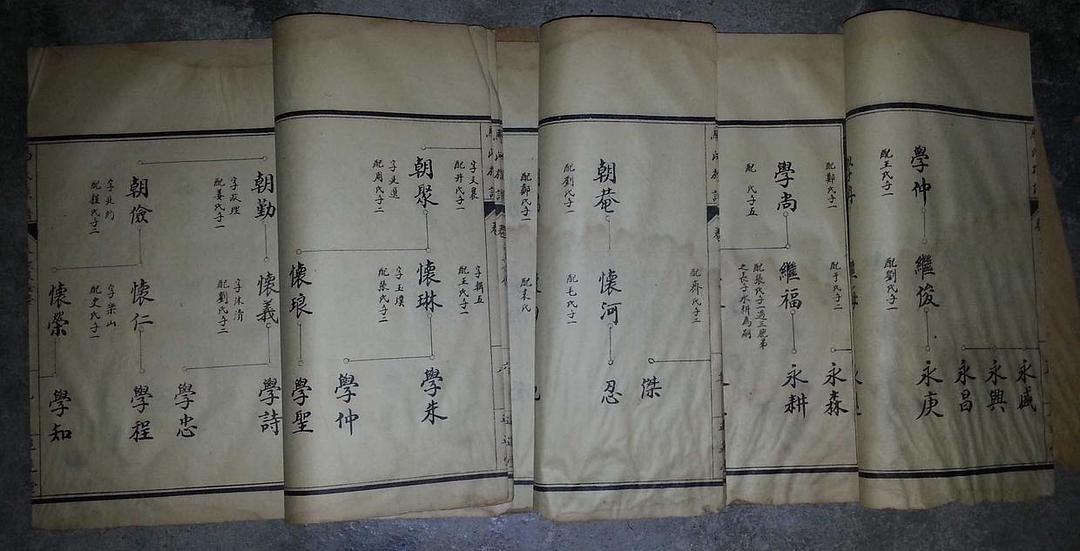 學仲
配王氏子一
繼俊
配劉氏子一
永盛
永興
永昌
永庚
配鄭氏子一
學尚
配 氏子五
配于氏子一
繼福
配張氏子一過三胞弟
之長子永耕為嗣
永森
永耕
朝菴
配劉氏子一
配齊氏子二
懷河
配毛氏子一
傑
忍
配鄭氏子一
配袁氏
字文襄
配井氏子一
朝聚
字文運
配周氏子二
字輯五
配王氏子一
懷琳
字玉璞
配張氏子二
懷琅
學朱
學仲
學聖
朝勤
字政理
配姜氏子一
朝儉
配程氏子二
懷義
字沐清
配劉氏子二
懷仁
字樂山
配史氏子一
懷榮
學詩
學忠
學程
學知